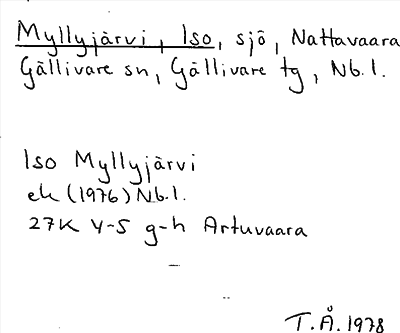 Myllyjärvi, Iso, sjö, Nattavaara
Gällivare sn, Gällivare tg, Nb.l.
Iso Myllyjärvi
ek (1976) Nb.l.
27K 4-5 g-h Artuvaara
T.Å. 1978